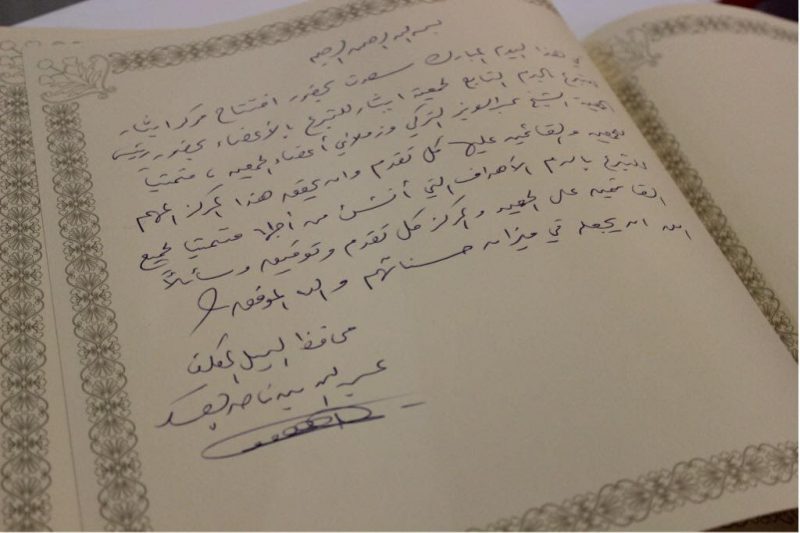 بسم الله الرحمن الرحيم
في هذا اليوم المبارك سعدت بحضور افتتاح مركز ايثار
للتبرع بالدم التابع لجمعية ايثار للتبرع بالأعضاء بحضور رئيس
الجمعية الشيخ عبدالعزيز التركي وزملائي أعضاء الجمعية ، متمنيا
للجمعية والقائمين عليها كل تقدم وان يحقق هذا المركز المهم
للتبرع بالدم الأهداف التي أنشئ من أجلها متمنيا لجميع
القائمين على الجمعية والمركز كل تقدم وتوفيق وسائلاً
الله ان يجعله في ميزان حسناتهم والله الموفق
محافظ الجبيل المكلف
عبدالله بن ناصر العسكر